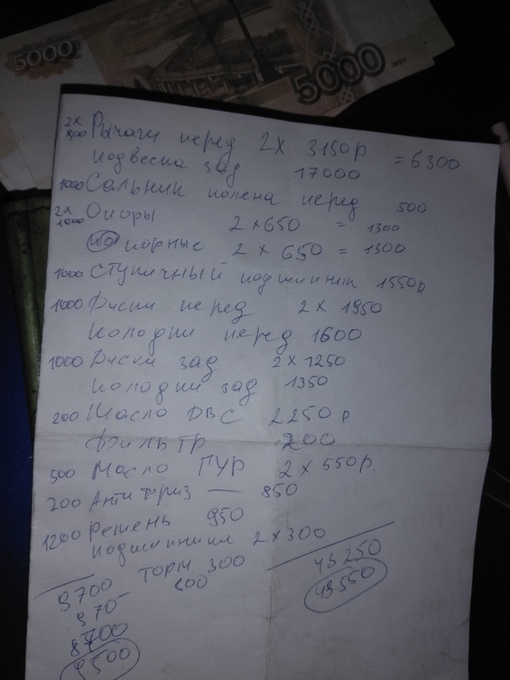 5000
5000
1997
2х
800 Рычаги перед 2 х 3150р = 6300
подвеска зад 17000
1000 Сальник колена перед 500
2х
1000 Опоры 2 х 650 = 1300
порные 2 х 650 = 1300
1000 ступичный подшипник 1550р
1000 Диски перед 2 х 1950
колодки перед 1600
1000 Диски зад 2 х 1250
колодки зад 1350
200 Масло ДВС 2250 р
Фильтр 200
500 Масло ГУР 2 х 550р.
200 Антифриз — 850
1200 Ремень 950
подшипники 2 х 300
торм 300
600
43250
43550
9700
970
8700
9500